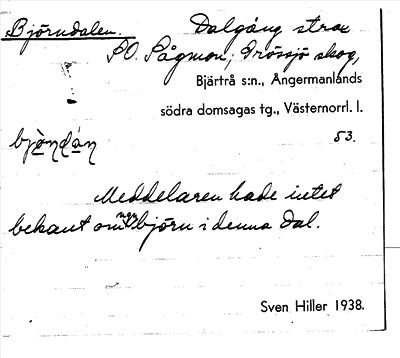 Björndalen. Dalgång strax
SO. Sågmon, Drössjö skog,
Bjärtrå s:n., Ångermanlands
södra domsagas tg., Västernorrl. l.
53.
bjò̱ṇḍá̱ṇ
Meddelaren hade intet
bekant om ngn björn i denna dal.
Sven Hiller 1938.